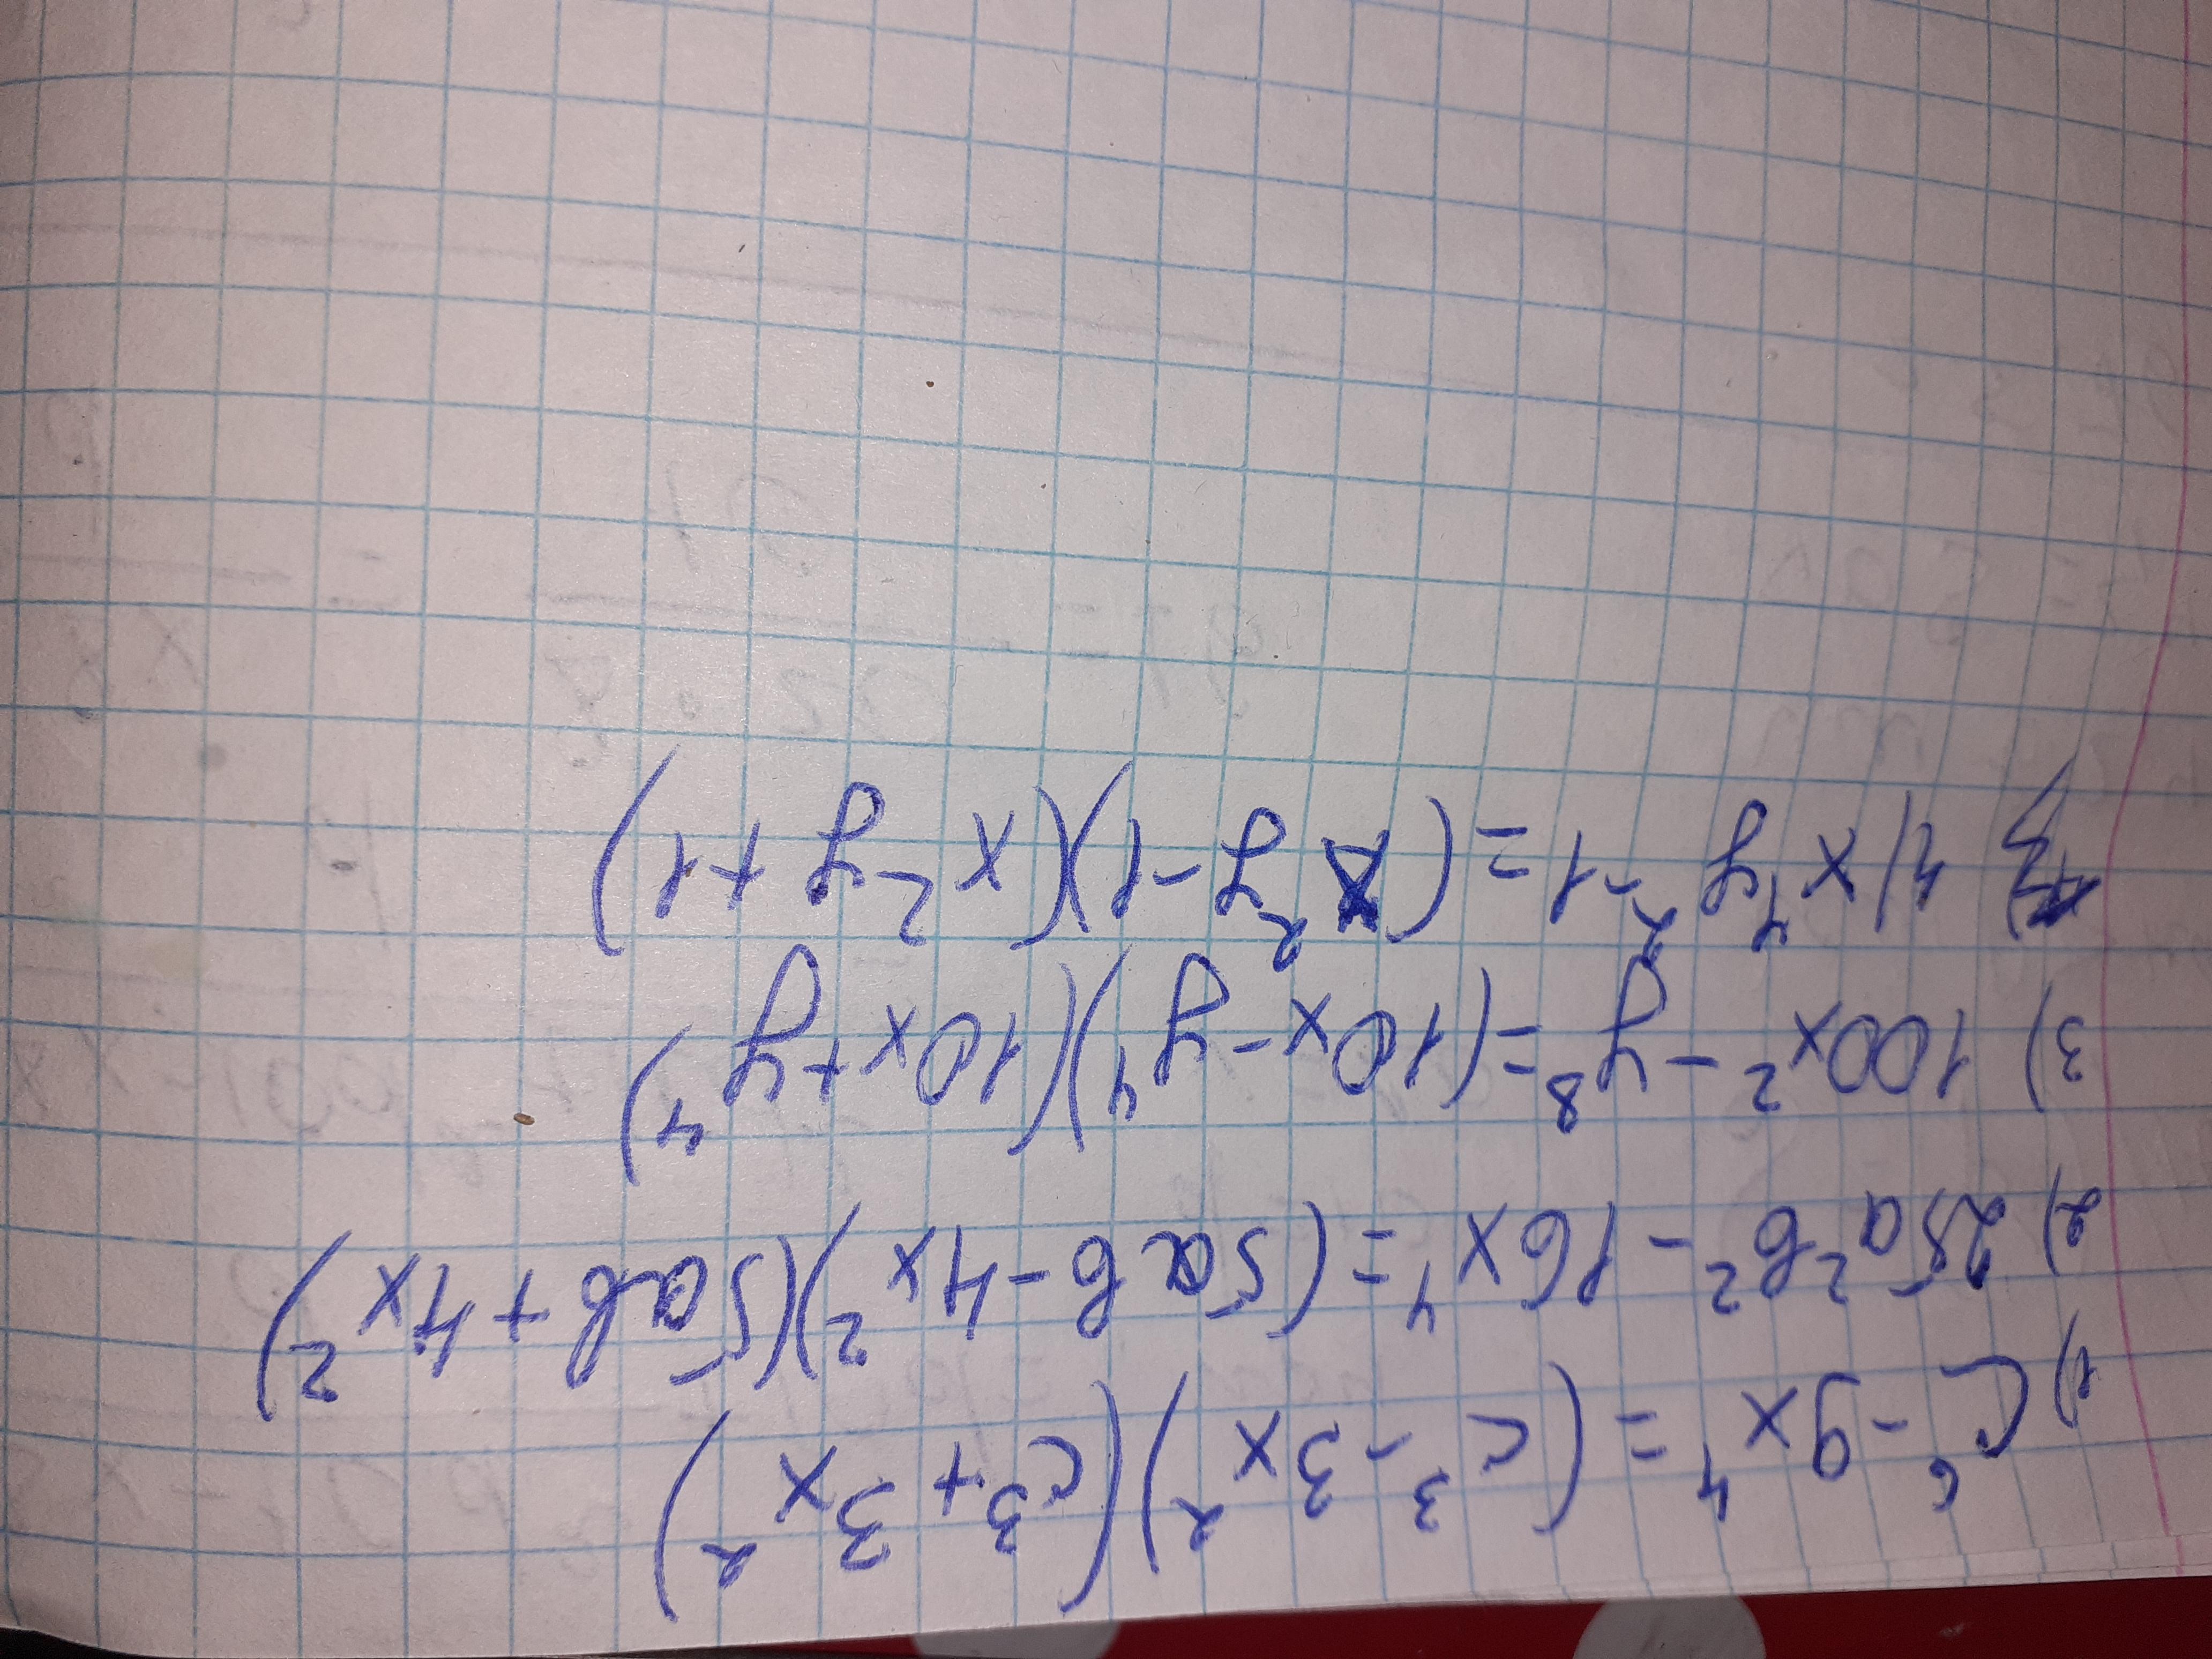 1) c⁶-9x⁴=(c³-3x²)(c³+3x²)
2) 25a²b²-16x⁴=(5ab-4x²)(5ab+4x²)
3) 100x²-y⁸=(10x-y⁴)(10x+y⁴)
4) x⁴y²-1=(x²y-1)(x²y+1)